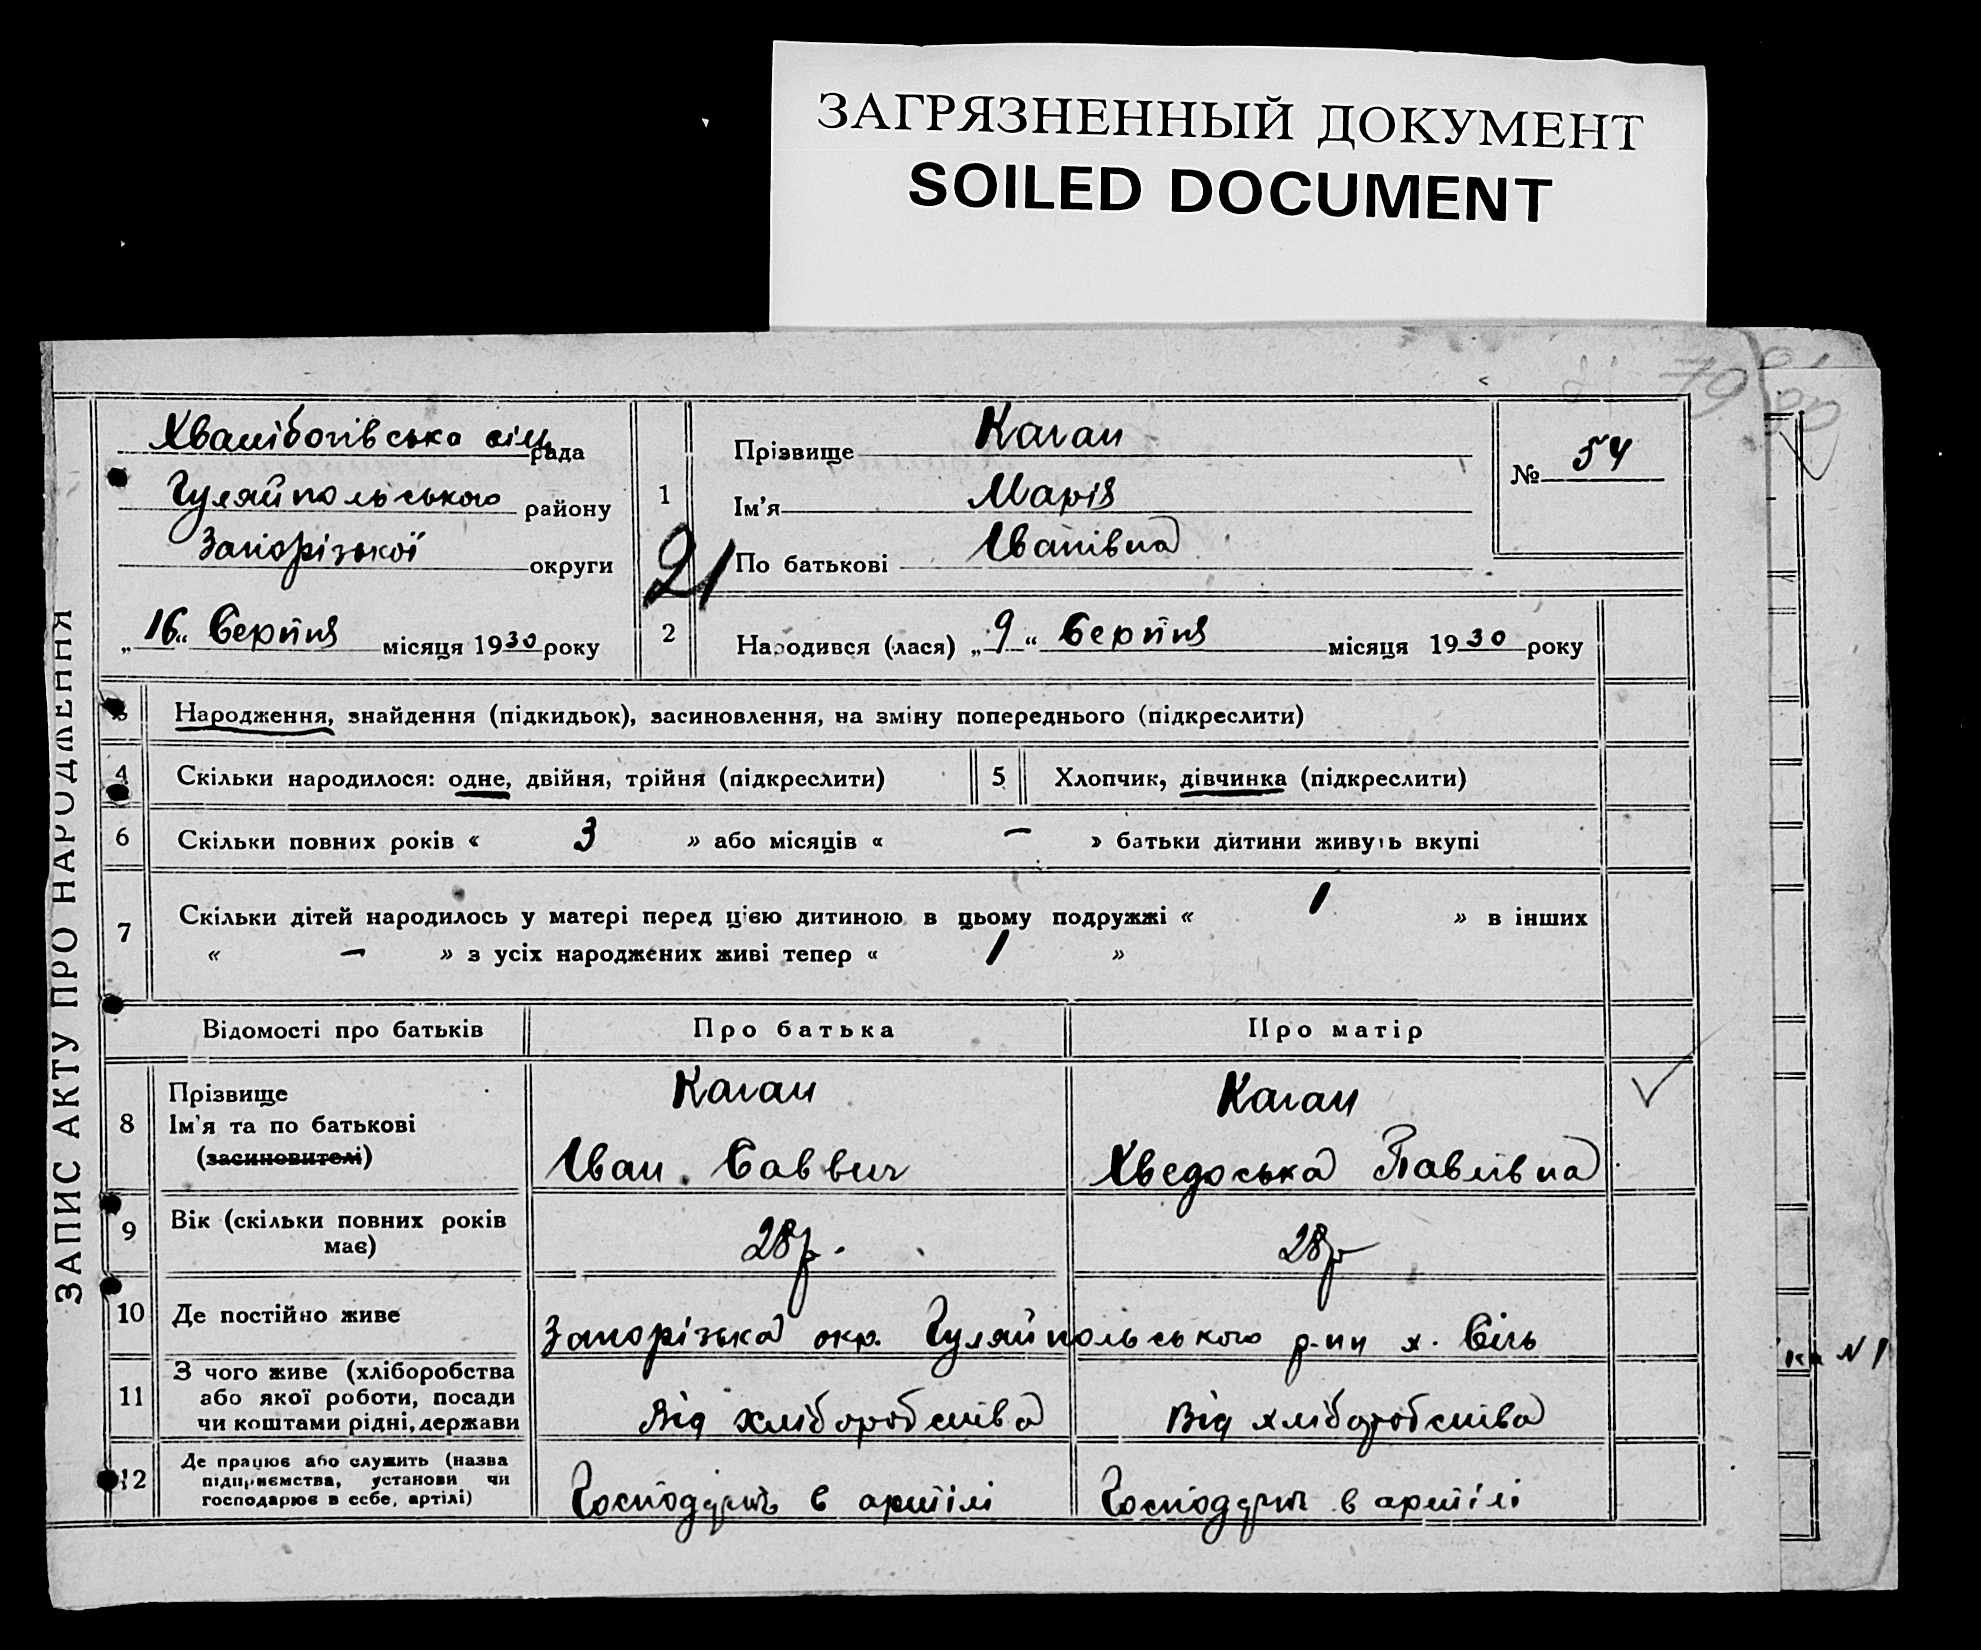 ЗАГРЯЗНЕННЫЙ ДОКУМЕНТ
SOILED DOCUMENT
79
ЗАПИС АКТУ ПРО НАРОДЖЕННЯ
Хвалібогівська сіль рада
Гуляйпольського району
Запорізької округи
„16“ Серпня місяця 1930 року
1
Прізвище Каган
Ім'я Марія
По батькові Іванівна
№ 54
21
2
Народився (лася) „9“ Серпня місяця 1930 року
3 Народження, знайдення (підкидьок), засиновлення, на зміну попереднього (підкреслити)
4 Скільки народилося: одне, двійня, трійня (підкреслити) 5 Хлопчик, дівчинка (підкреслити)
6 Скільки повних років « 3 » або місяців « — » батьки дитини живуть вкупі
7 Скільки дітей народилось у матері перед цією дитиною в цьому подружжі « 1 » в інших
« — » з усіх народжених живі тепер « 1 »
Відомості про батьків Про батька Про матір
8 Прізвище
Ім'я та по батькові
(засиновителі)
Каган
Іван Саввич
Каган
Хведоська Павлівна
9 Вік (скільки повних років
має)
28 р.
28 р
10 Де постійно живе Запорізька окр. Гуляйпольського р-ни х. Сіль
11 З чого живе (хліборобства
або якої роботи, посади
чи коштами рідні, держави
Від хліборобства
Від хліборобства
12 Де працює або служить (назва
підприємства, установи чи
господарює в себе, артілі)
Господарить в артілі
Господарить в артілі
№ 1